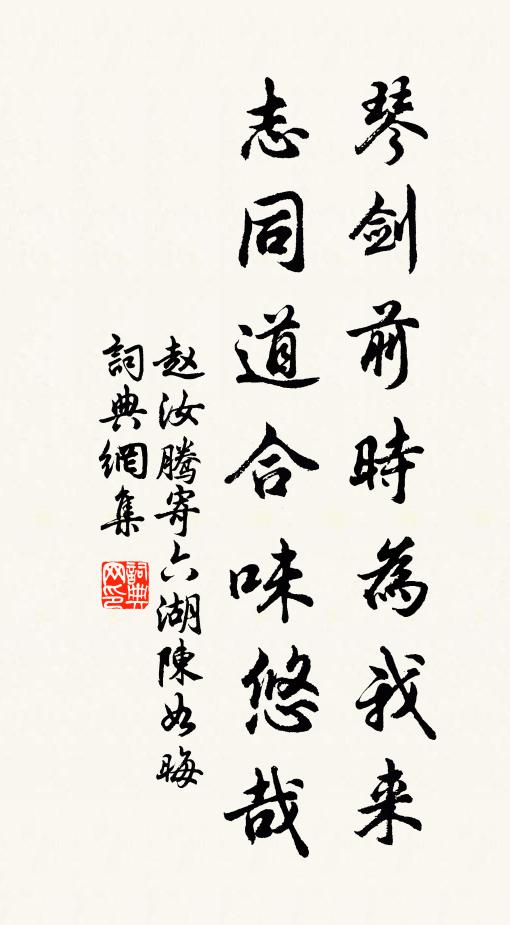 琴劍前時為我来
志同道合味悠哉
赵汝腾寄六湖陳如晦
詞典網集
詞典网印